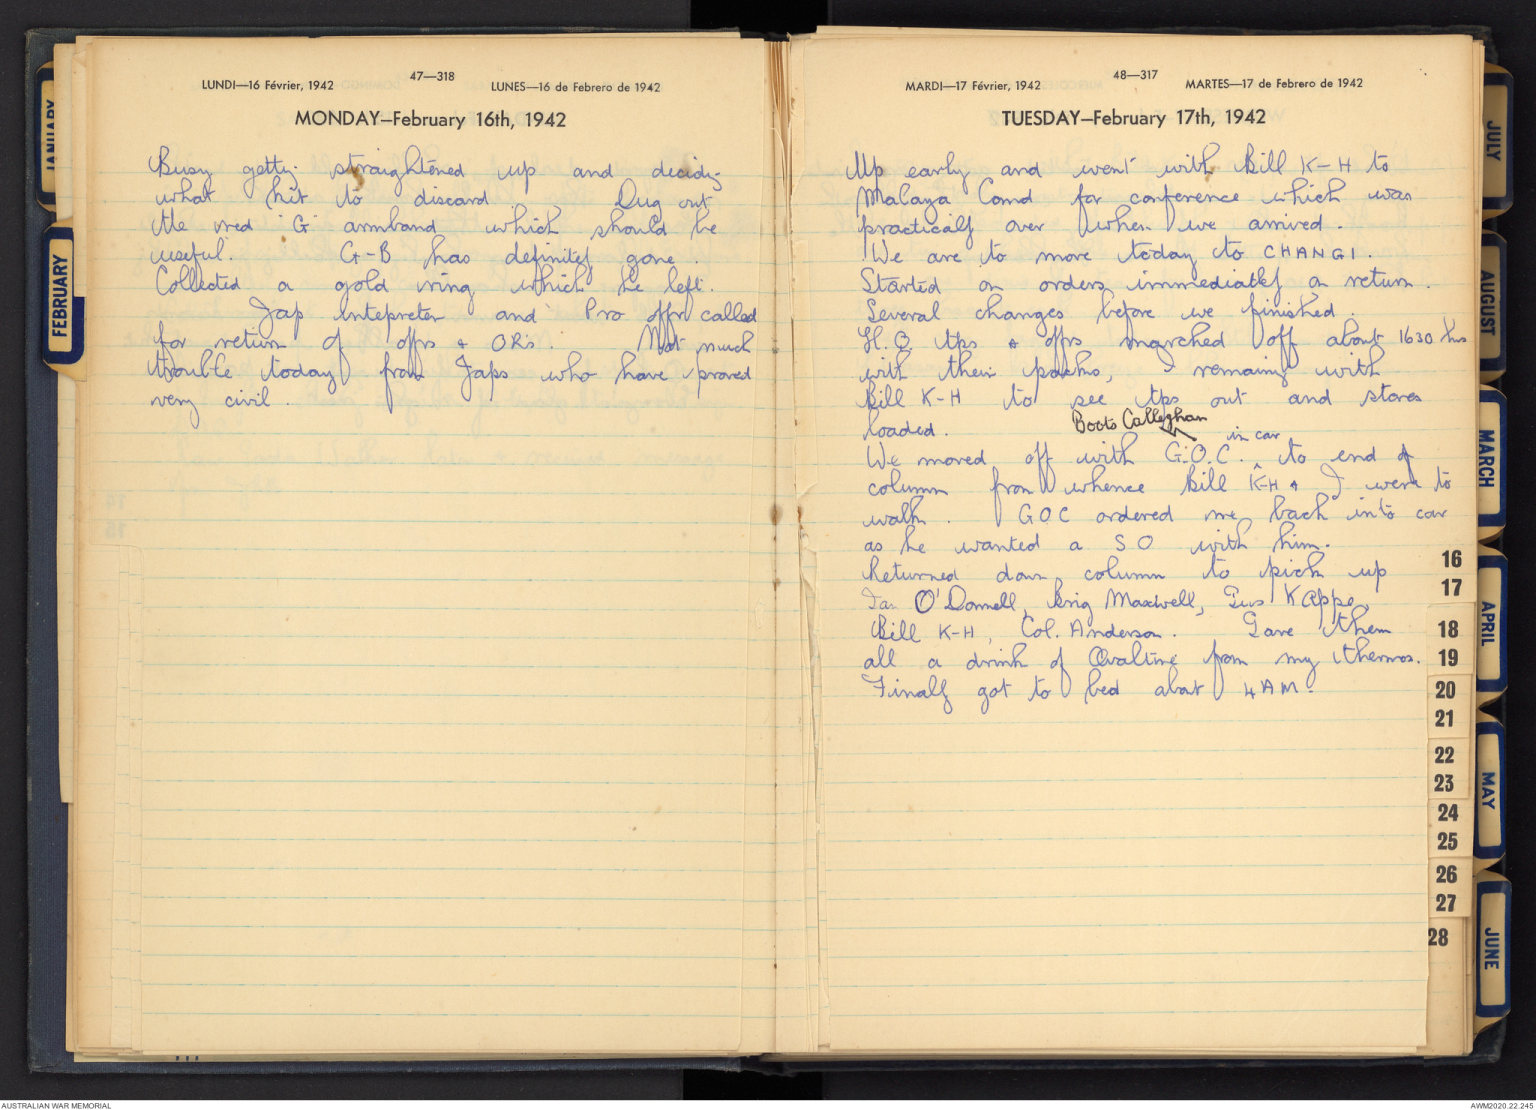 JANUARY
FEBRUARY
LUNDI—16 Février, 1942
47—318
LUNES—16 de Febrero de 1942
MONDAY—February 16th, 1942
Busy gettg straightened up and decidg
what kit to discard. Dug out
the red 'G' armband which should be
useful. G-B has definitely gone.
Collected a gold ring which he left.
Jap intepreter and Pro offr called
for return of offrs + ORs. Not much
trouble today from Japs who have proved
very civil.
MARDI—17 Février, 1942
48—317
MARTES—17 de Febrero de 1942
TUESDAY—February 17th, 1942
Up early and went with Bill K-H to
Malaya Comd for conference which was
practically over when we arrived.
We are to move today to CHANGI.
Started on orders immediately on return.
Several changes before we finished.
H.Q. tps + offrs marched off about 1630 hrs
with their packs, I remaing with
Bill K-H to see tps out and stores
loaded.
Boots Calleghan
in car
We moved off with G.O.C. to end of
column from whence Bill K-H + I were to
walk. GOC ordered me back into car
as he wanted a SO with him.
Returned down column to pick up
Ian O'Donnell, Brig Maxwell, Gus KAppe,
Bill K-H, Col. Anderson. Gave them
all a drink of Ovaltine from my thermos.
Finally got to bed about 4 AM.
16
17
18
19
20
21
22
23
24
25
26
27
28
JULY
AUGUST
MARCH
APRIL
MAY
JUNE
AUSTRALIAN WAR MEMORIAL
AWM2020.22.245